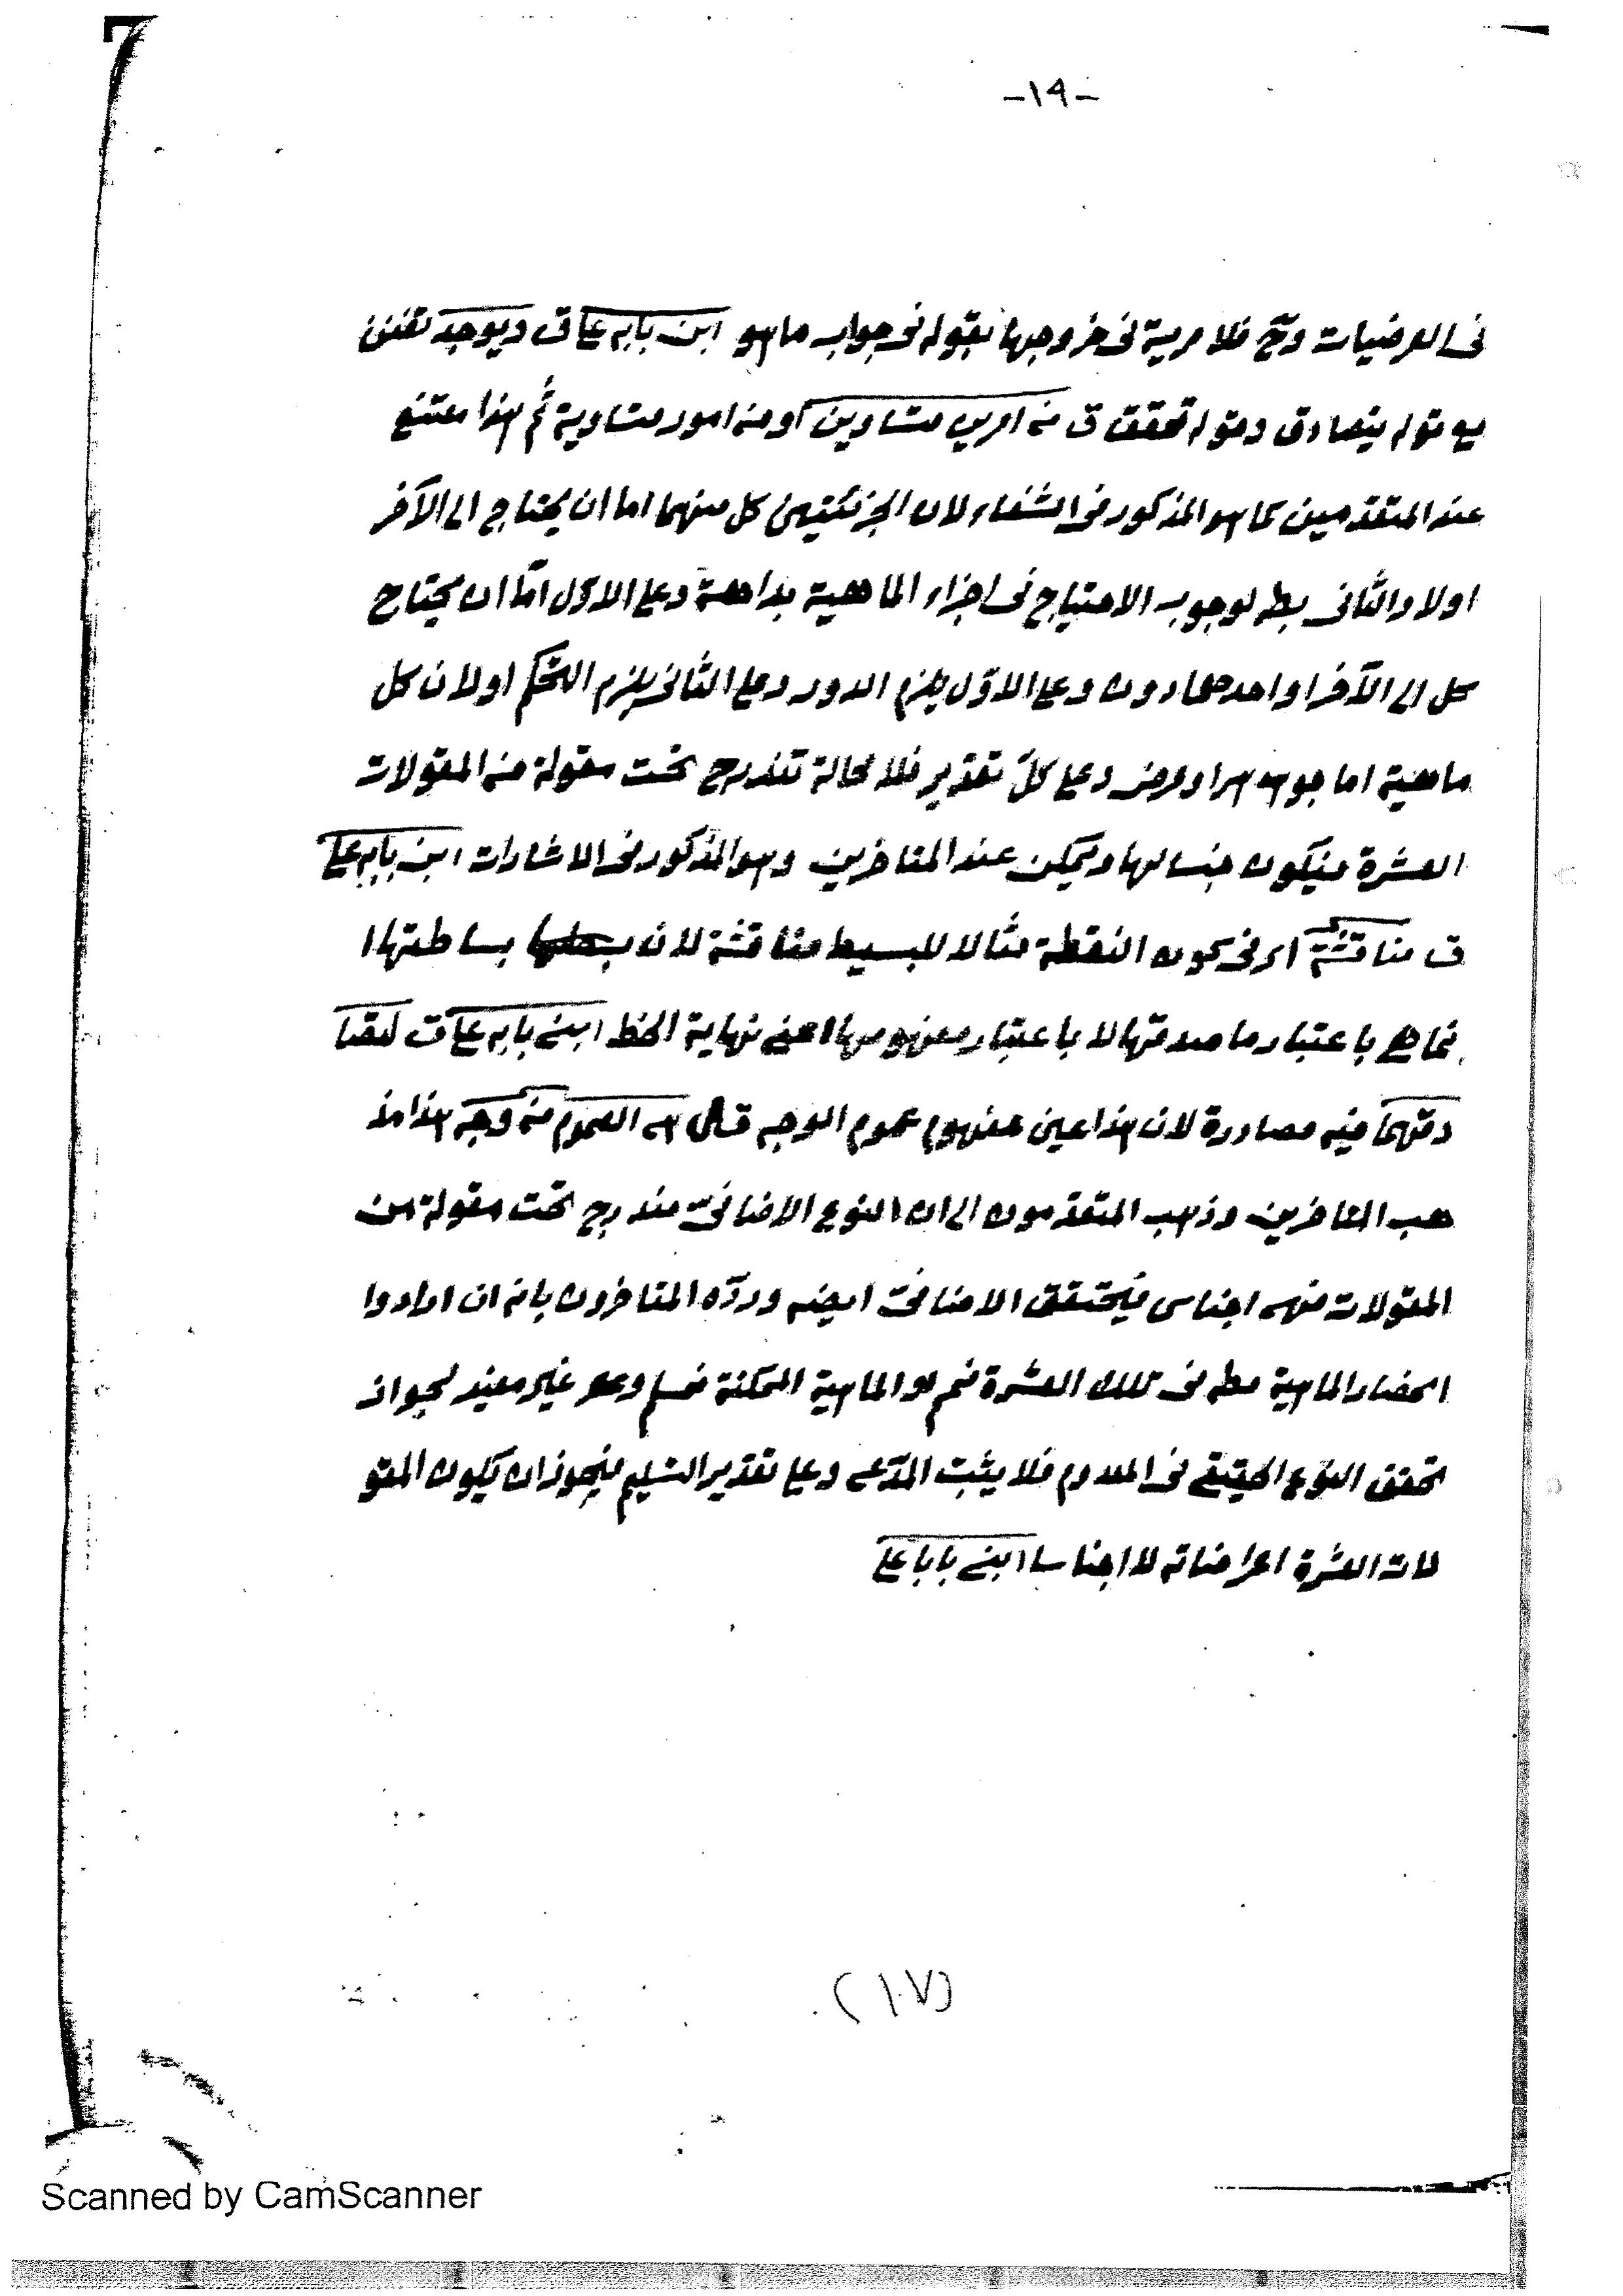 -١٩-
فى العرضيات وح فلا مرية فى خروجها بقوله فى جواب ما هو ابن بابه عا ق ويوجد تفنن
مع قوله يتصادق وقوله تحقق ق من امرين متساويين او من امور متساوية ثم هذا ممتنع
عند المتقدمين كما هو المذكور فى الشفاء لان الجزئتين كل منهما اما ان يحتاج الى الآخر
اولا والثانى بط لوجوب الاحتياج فى اجزاء الماهية بداهة وعلى الاول امّا ان يحتاج
كل الى الآخر او احدهما دون وعلى الاوّل يلزم الدور وعلى الثانى يلزم التحكم اولان كل
ماهية اما جوهرا او عرض وعلى كلّ تقدير فلا محالة تندرج تحت مقولة من المقولات
العشرة فيكون جنسا لها ويمكن عند المتاخرين وهو المذكور فى الاشارات ابن بابه عا
ق مناقشة اى فى كون النقطة مثالا للبسيط مناقشة لان بساطتها ا
نما هى باعتبار ما صدقتها لا باعتبار مفهومها اعنى نهاية الخط ابنى بابه عا ق لتصا
دقهما فيه مصادرة لان هذا عين مفهوم عموم الوجه قال العموم من وجه هذا مذ
هب المتاخرين وذهب المتقدمون الى ان النوع الاضافىّ مندرج تحت مقولة من
المقولات فهى اجناس فيتحقق الاضافى ايضه وردّه المتاخرون بانه ان ارادوا
انحصار الماهية مطه فى تلك العشرة فمم او الماهية الممكنة فمسلم وهو غير مفيد لجواز
تحقق النوع الحقيقى فى المعدوم فلا يثبت المدّعى وعلى تقدير التسليم فيجوز ان يكون المقو
لات العشرة اعراضاته لا اجناسا ابنى بابا عا
(١٧)
Scanned by CamScanner